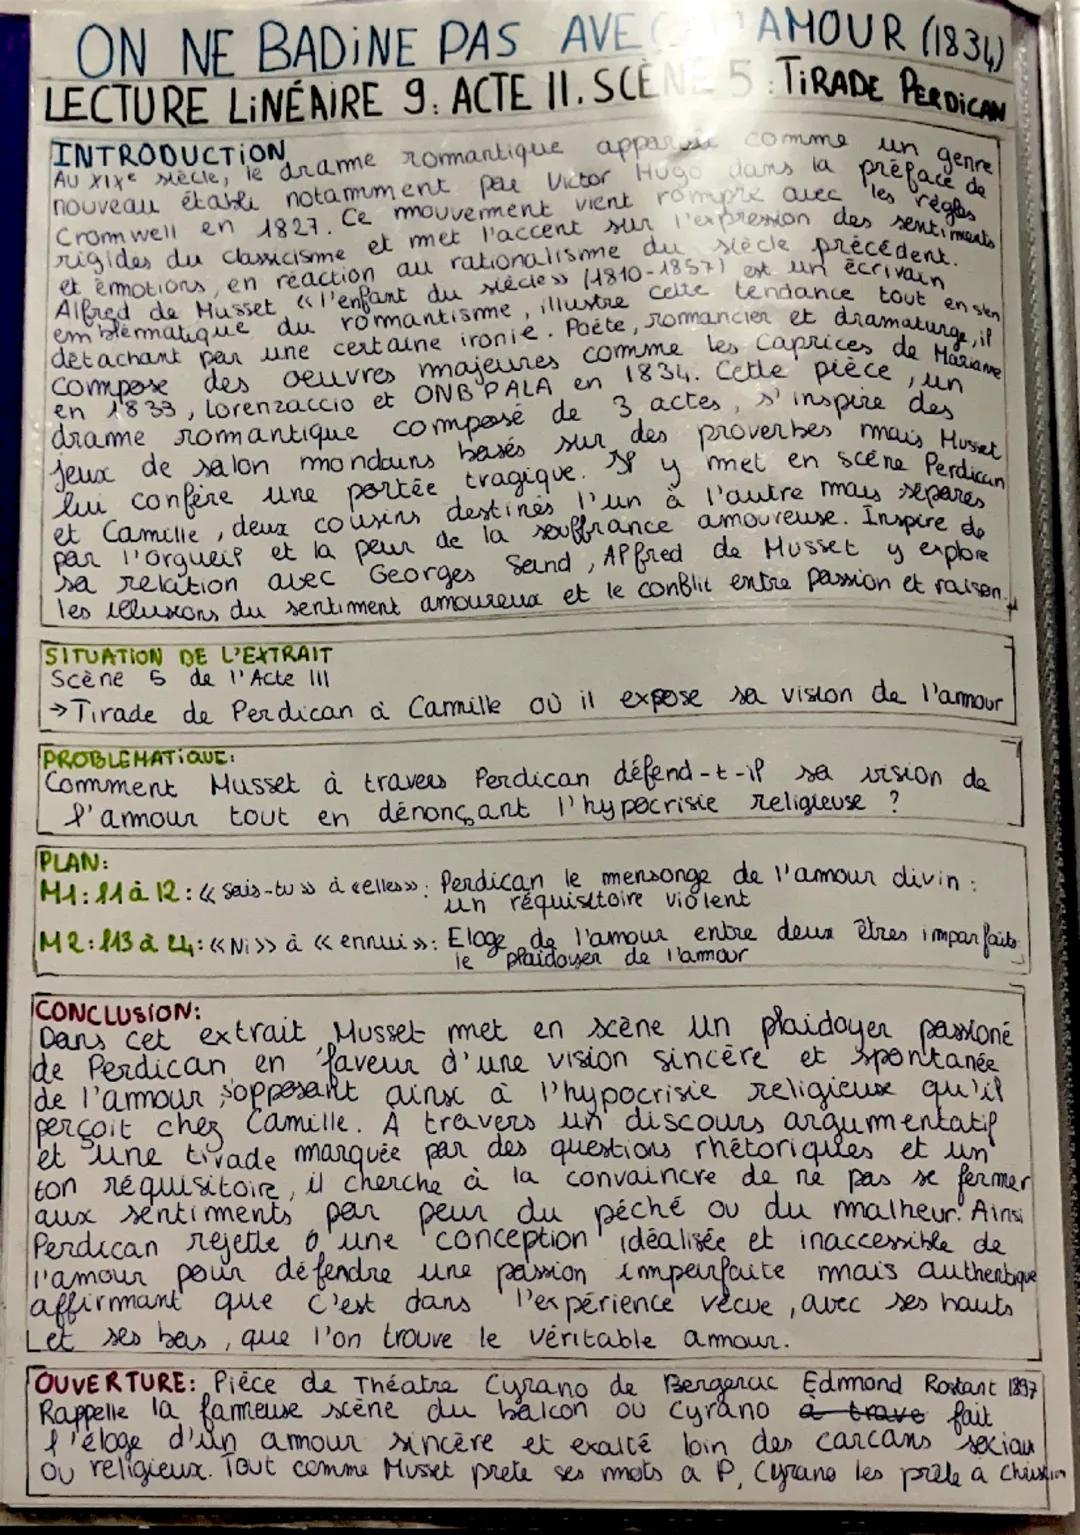 ON NE BADINE PAS AVEC L'AMOUR (1834)
LECTURE LINÉAIRE 9: ACTE II. SCÈNE 5: TIRADE PERDICAN
INTRODUCTION
Au XIXe siècle, le drame romantique apparait comme un genre
nouveau établi notamment par Victor Hugo dans la préface de
Cromwell en 1827. Ce mouvement vient rompre avec les règles
rigides du classicisme et met l'accent sur l'expression des sentiments
et émotions, en réaction au rationalisme du siècle précédent.
Alfred de Musset « l'enfant du siècle » (1810-1857) est un écrivain
emblématique du romantisme, illustre cette tendance tout en s'en
détachant par une certaine ironie. Poète, romancier et dramaturge, il
compose des oeuvres majeures comme les Caprices de Marianne
en 1833, Lorenzaccio et ONBPALA en 1834. Cette pièce, un
drame romantique composé de 3 actes, s'inspire des
jeux de salon mondains basés sur des proverbes mais Musset
lui confère une portée tragique. Il y met en scène Perdican
et Camille, deux cousins destinés l'un à l'autre mais séparés
par l'orgueil et la peur de la souffrance amoureuse. Inspiré de
sa relation avec Georges Sand, Alfred de Musset y explore
les illusions du sentiment amoureux et le conflit entre passion et raison.
SITUATION DE L'EXTRAIT
Scène 5 de l'Acte III
→ Tirade de Perdican à Camille où il expose sa vision de l'amour
PROBLÉMATIQUE:
Comment Musset à travers Perdican défend-t-il sa vision de
l'amour tout en dénonçant l'hypocrisie religieuse ?
PLAN:
M1: l1 à 12: « Sais-tu » à « elles »: Perdican le mensonge de l'amour divin:
un réquisitoire violent
M2: l13 à 24: « Ni » à « ennui »: Eloge de l'amour entre deux êtres imparfaits
le plaidoyer de l'amour
CONCLUSION:
Dans cet extrait, Musset met en scène un plaidoyer passioné
de Perdican en faveur d'une vision sincère et spontanée
de l'amour, s'opposant ainsi à l'hypocrisie religieuse qu'il
perçoit chez Camille. A travers un discours argumentatif
et une tirade marquée par des questions rhétoriques et un
ton réquisitoire, il cherche à la convaincre de ne pas se fermer
aux sentiments par peur du péché ou du malheur. Ainsi
Perdican rejette d'une conception idéalisée et inaccessible de
l'amour pour défendre une passion imparfaite mais authentique
affirmant que c'est dans l'expérience vécue, avec ses hauts
et ses bas, que l'on trouve le véritable amour.
OUVERTURE: Pièce de Théatre Cyrano de Bergerac Edmond Rostant 1897
Rappelle la fameuse scène du balcon ou Cyrano a trave fait
l'éloge d'un amour sincère et exalté loin des carcans sociaux
ou religieux. Tout comme Musset prete ses mots a P, Cyrano les prête a Christian